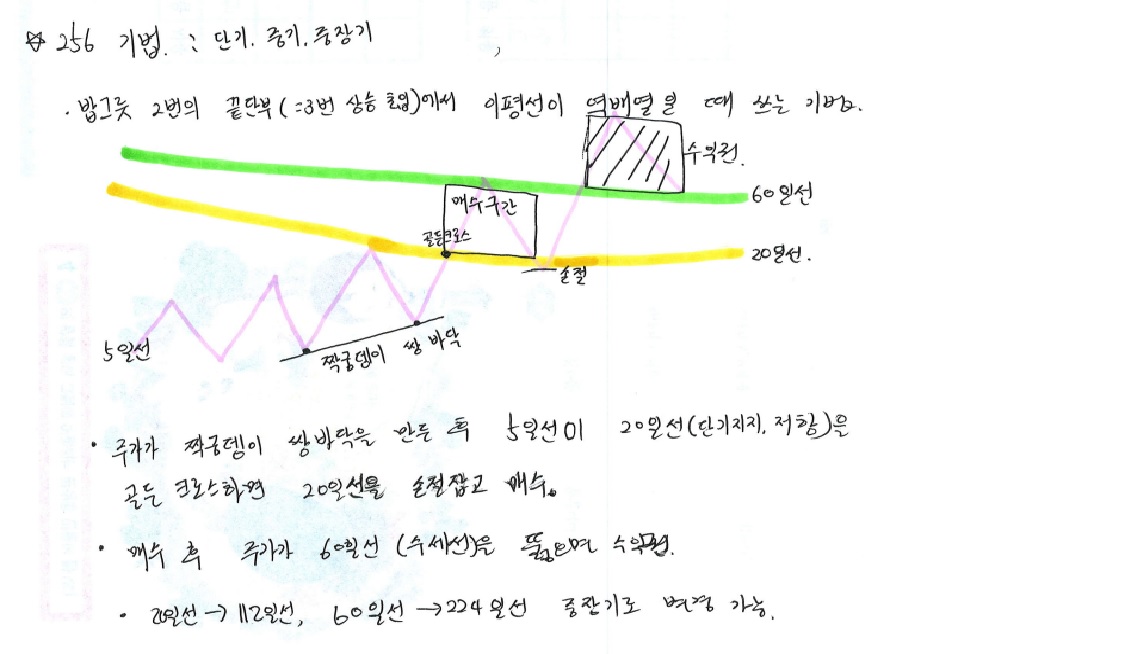 ☆ 256 기법. : 단기. 중기. 중장기
· 밥그릇 2번의 끝단부(=3번 상승 초입)에서 이평선이 역배열일 때 쓰는 기법.
수익권.
60일선
매수구간
골든크로스
20일선.
손절
5일선
짝궁뎅이 쌍바닥
· 주가가 짝궁뎅이 쌍바닥을 만든 후 5일선이 20일선(단기지지, 저항)을
골든크로스하면 20일선을 손절잡고 매수.
· 매수 후 주가가 60일선 (수세선)을 뚫으면 수익권.
· 20일선 → 112일선, 60일선 → 224일선 중장기로 변경 가능.